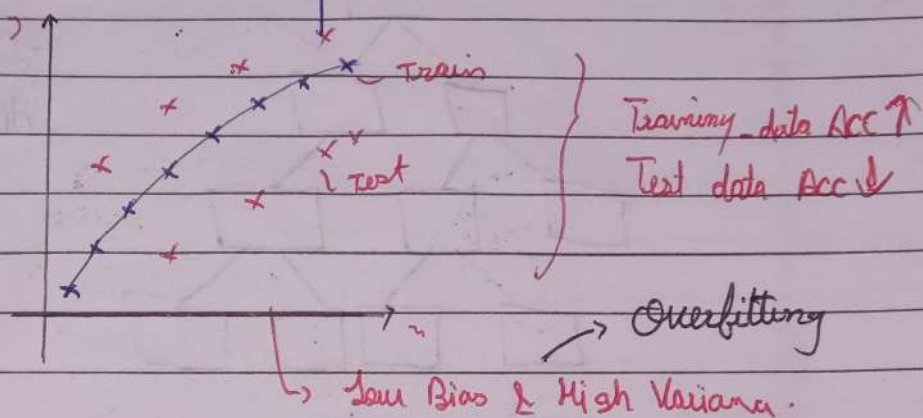 Train
Training data Acc ↑
Test
Test data Acc ↓
Overfitting
Low Bias & High Variance.